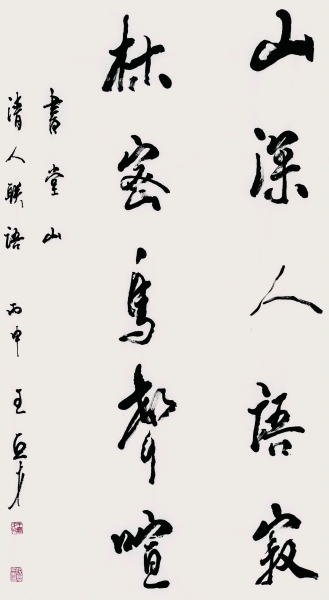 山深人語寂
林密鳥聲喧
書堂山
清人聯語 丙申 王